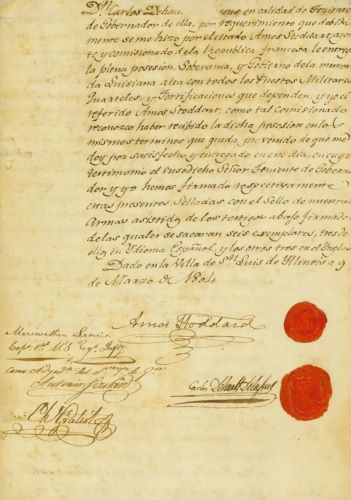 Dn. Carlos Dehau en calidad de Teniente
de Gobernador de ella, por requerimiento que debida
mente se me hizo por el citado Amos Stoddart, agen
te y comisionado de la Republica francesa le entre
la plena posesion, Soberania, y Govierno de la
da Luisiana alta con todos los Puestos Militares
Quarteles, y Fortificaciones que dependen, y yo el
referido Amos Stoddart, como tal comisionado
reconozco haber recibido la dicha posesion en los
mismos terminos que queda prevenido de que me
doy por satisfecho y entregado en este dia, en cuyo
testimonio el susodicho Señor Teniente de Goberna
dor y yo hemos firmado respectivamente
estas presentes, Selladas con el Sello de nuestras
Armas asistidos de los testigos abajo firmados
de las quales se sacaran seis exemplares, tres de
ellos en Ydioma Español, y los otros tres en el Ingles
Dado en la Villa de Sn. Luis de Illinois a 9
de Marzo de 1804
Amos Stoddard
Meriwether Lewis
Capt. 1st. U.S. Regt. Infty.
Antoine Soulard
Carlos Dehault Delassus
Ch Gratiot